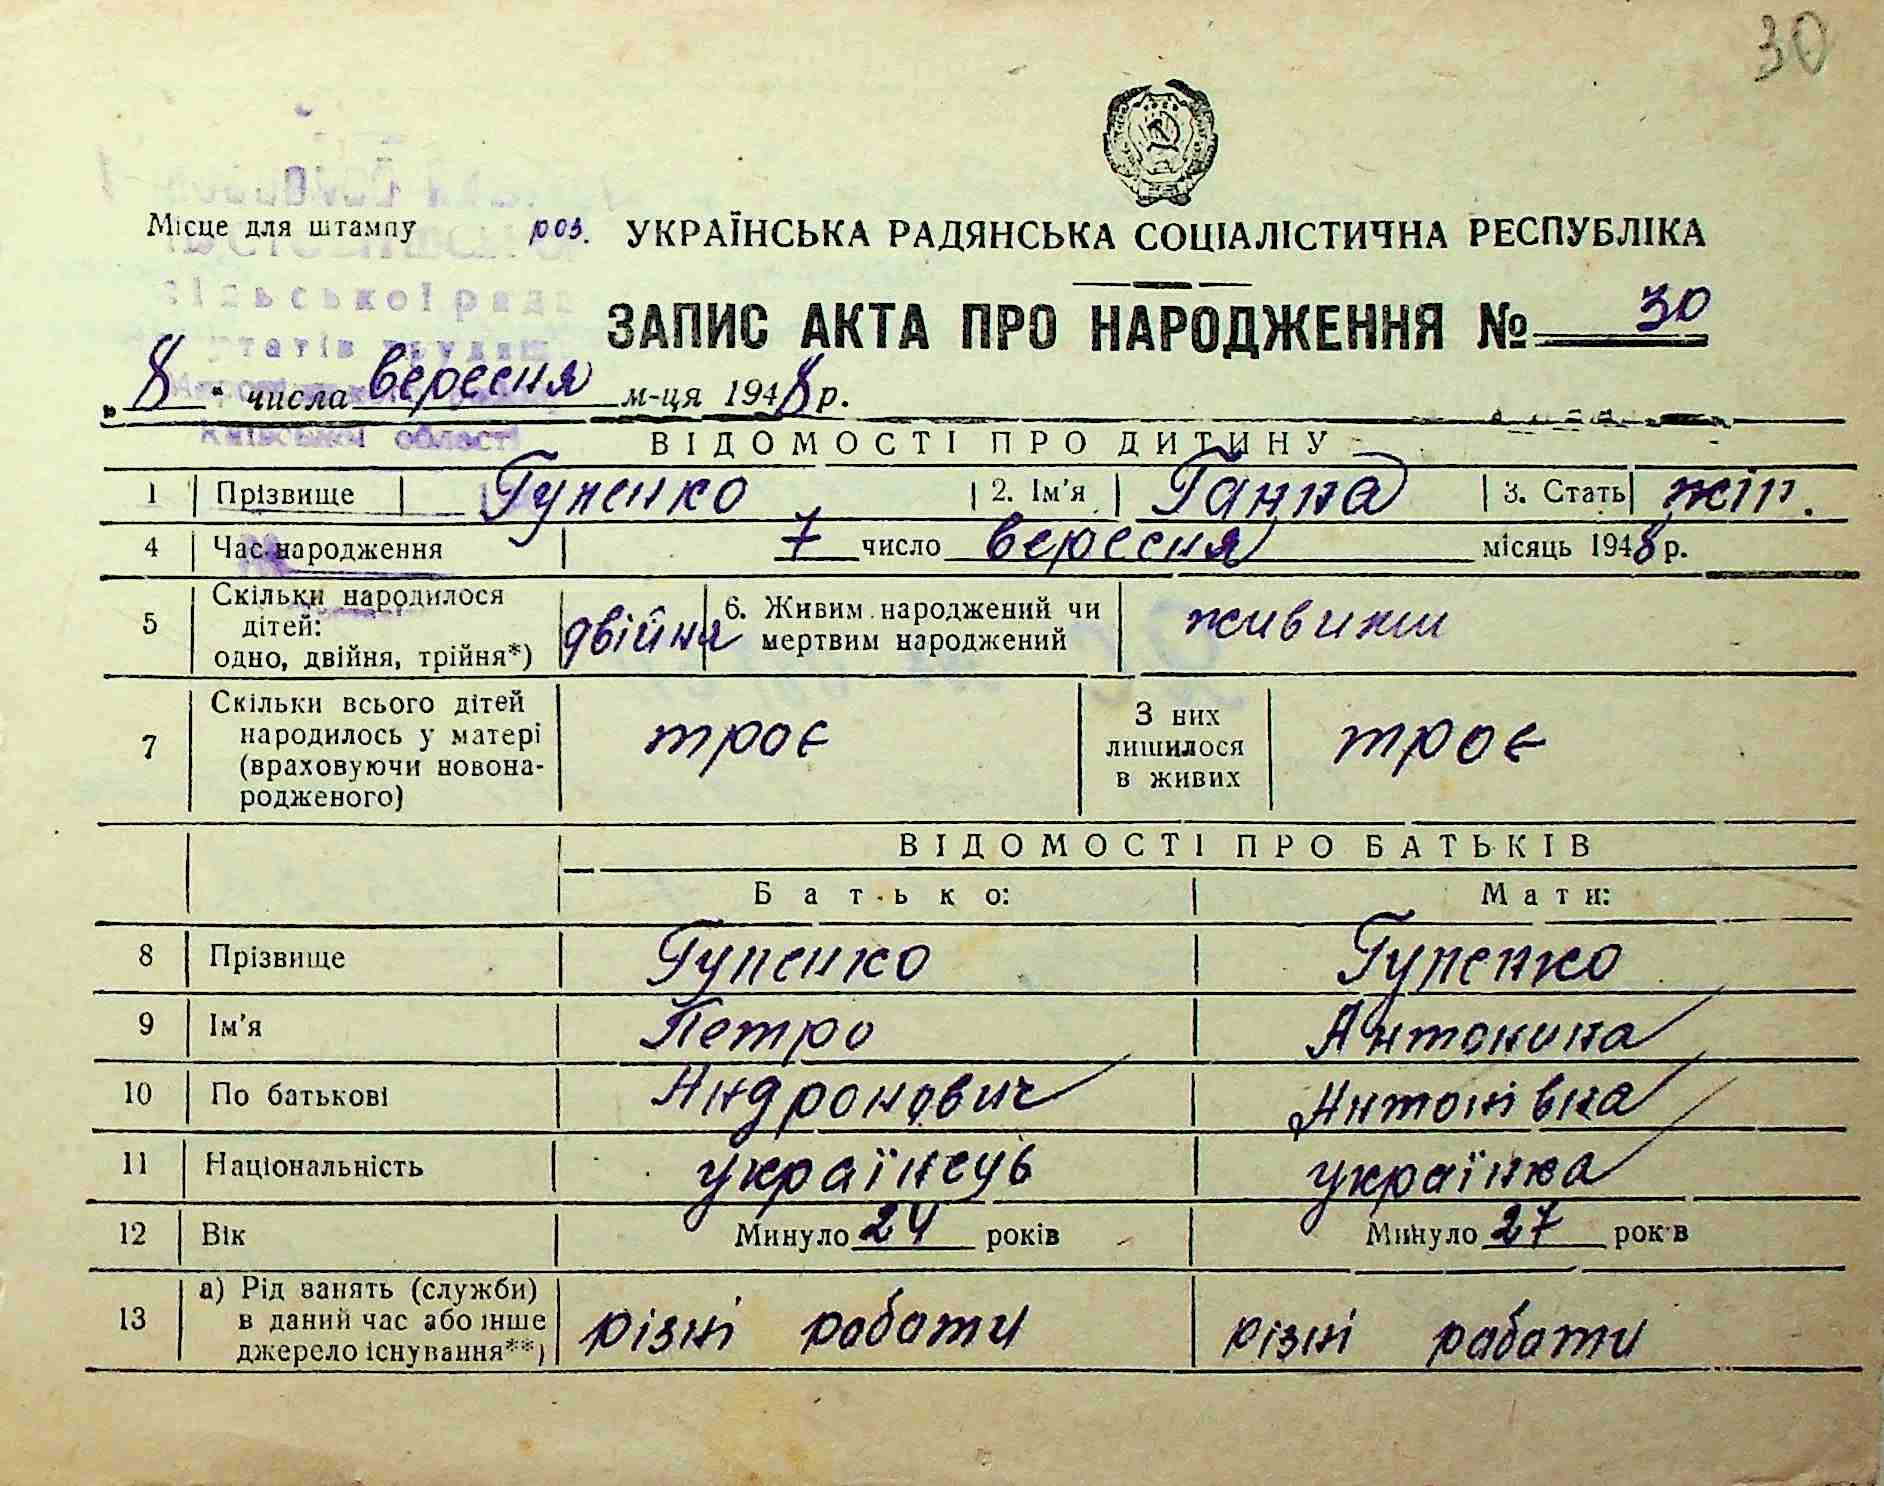 30
Місце для штампу роз. УКРАЇНСЬКА РАДЯНСЬКА СОЦІАЛІСТИЧНА РЕСПУБЛІКА
сільської ради
ЗАПИС АКТА ПРО НАРОДЖЕННЯ № 30
„8" числа вересня м-ця 1948 р.
Київської області
ВІДОМОСТІ ПРО ДИТИНУ
1 Прізвище Гупенко 2. Ім'я Ганна 3. Стать жін.
4 Час народження 7 число вересня місяць 1948 р.
5 Скільки народилося дітей: одно, двійня, трійня*) двійня 6. Живим народжений чи мертвим народжений живими
7 Скільки всього дітей народилось у матері (враховуючи новонародженого) троє З них лишилося в живих троє
ВІДОМОСТІ ПРО БАТЬКІВ
Батько: Мати:
8 Прізвище Гупенко Гупенко
9 Ім'я Петро Антонина
10 По батькові Андронович Антонівна
11 Національність українець українка
12 Вік Минуло 24 років Минуло 27 років
13 а) Рід занять (служби) в даний час або інше джерело існування**) різні работи різні работи